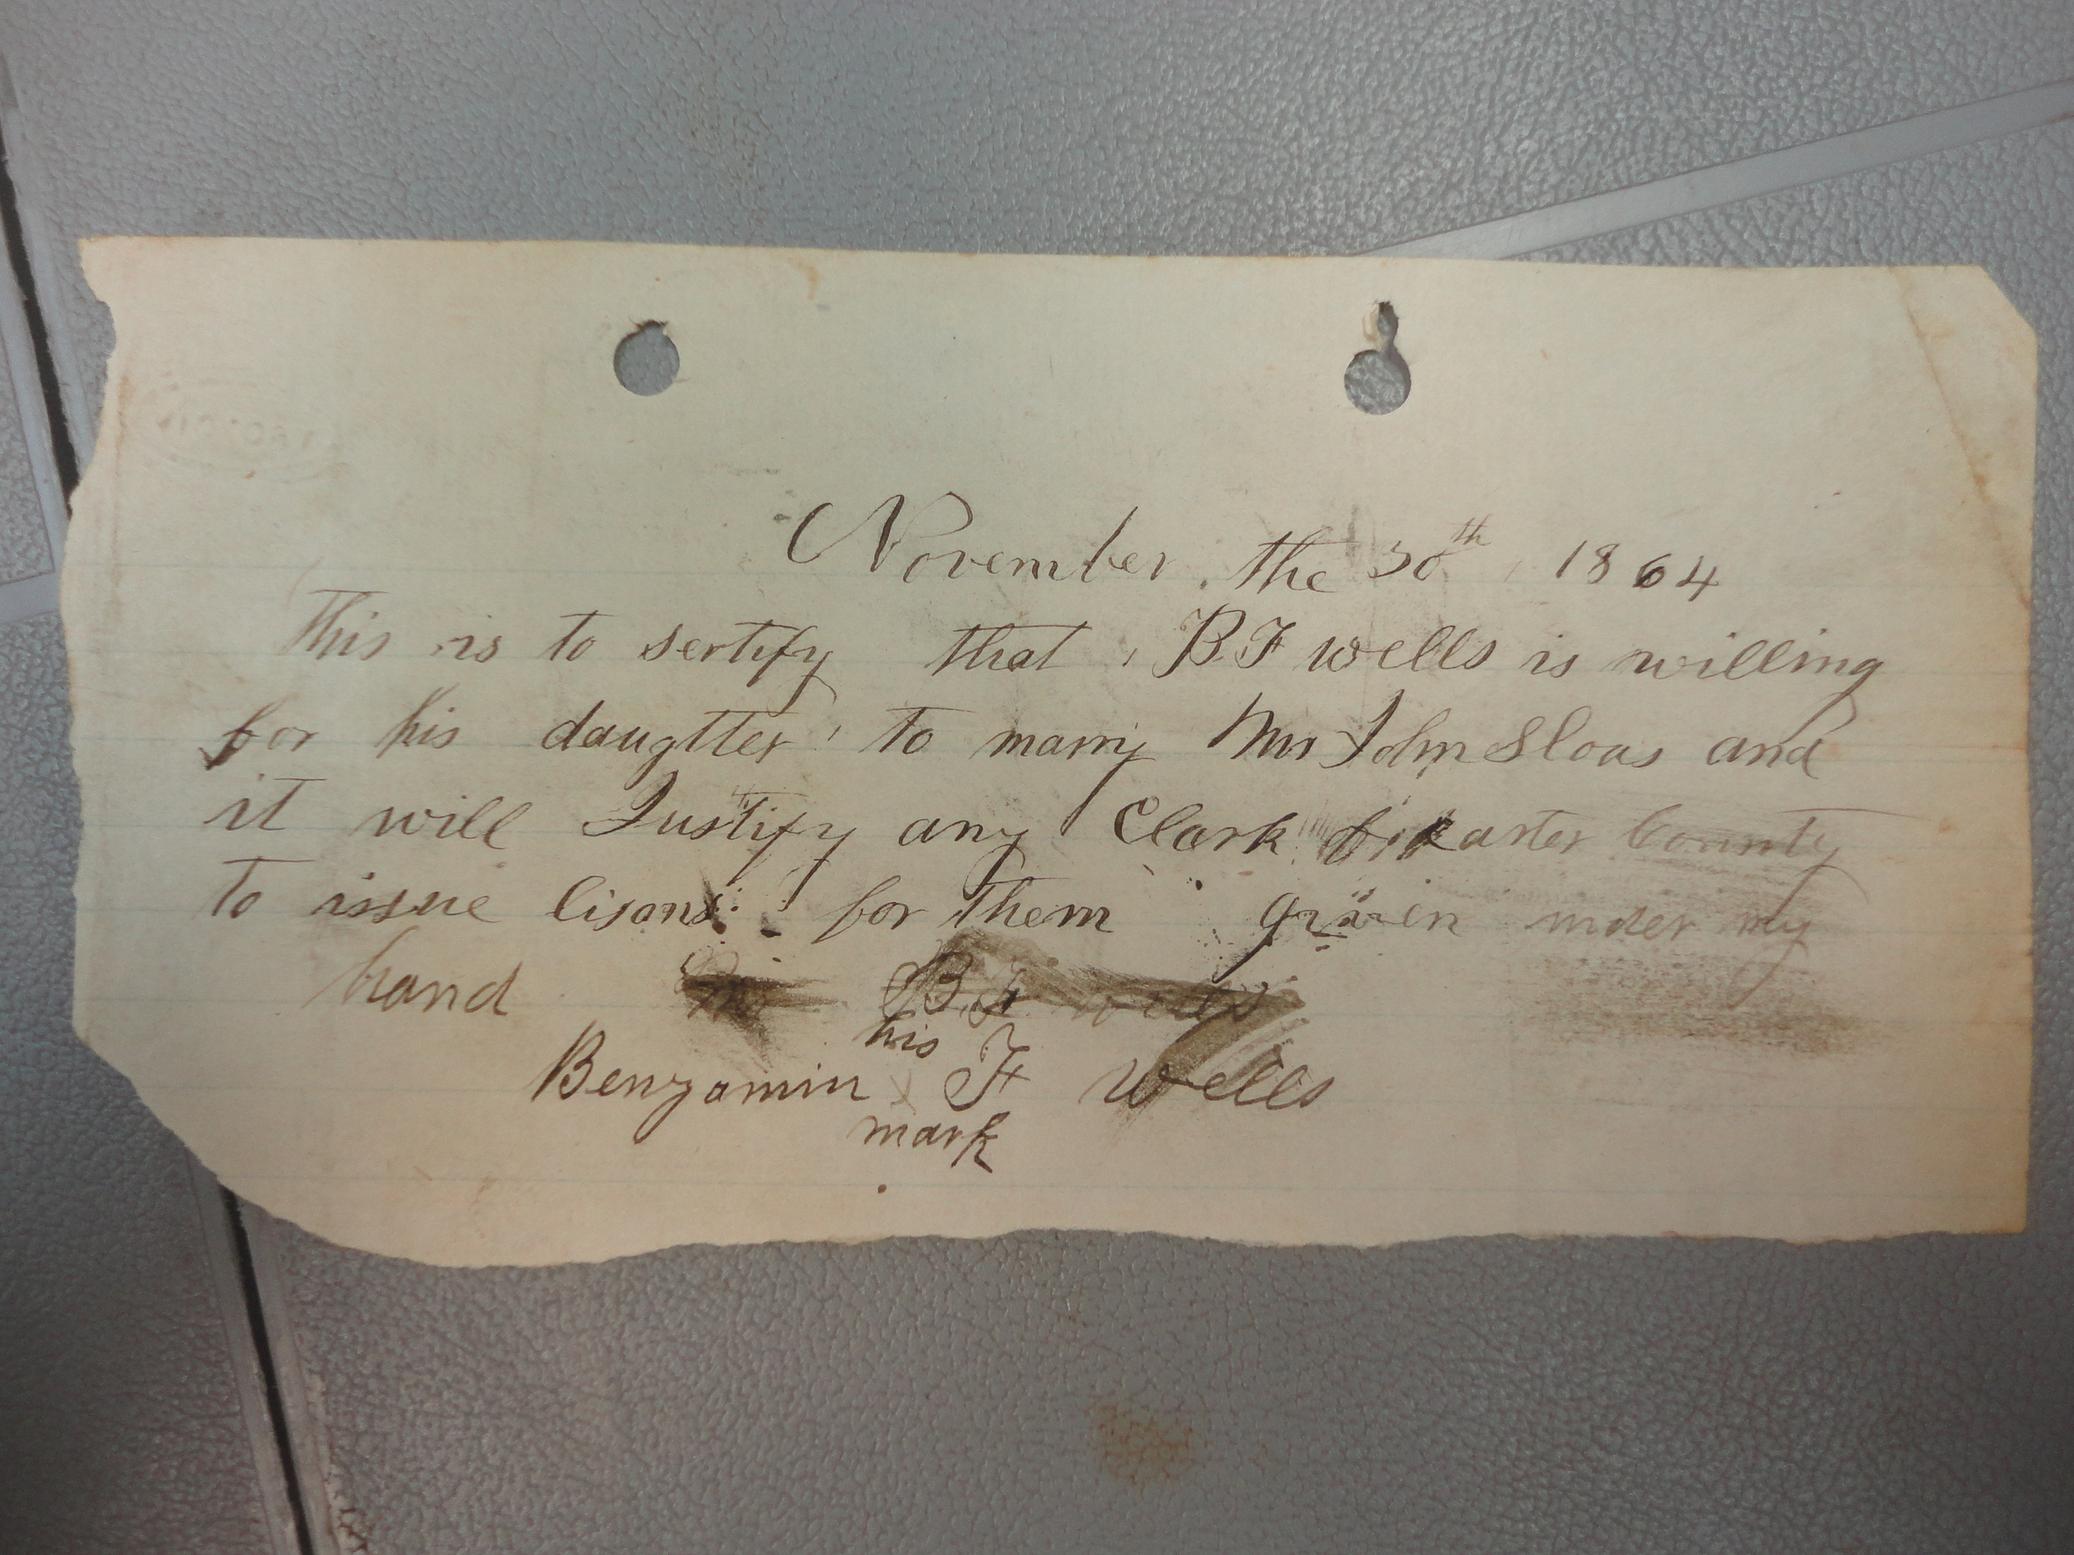 November the 30th 1864
This is to sertify that B F wells is willing
for his daugtter to marry Mr John Sloas and
it will Justify any Clark Carter County
to issue lisons for them given under my
hand B F wells
his
Benjamin x F Wells
mark